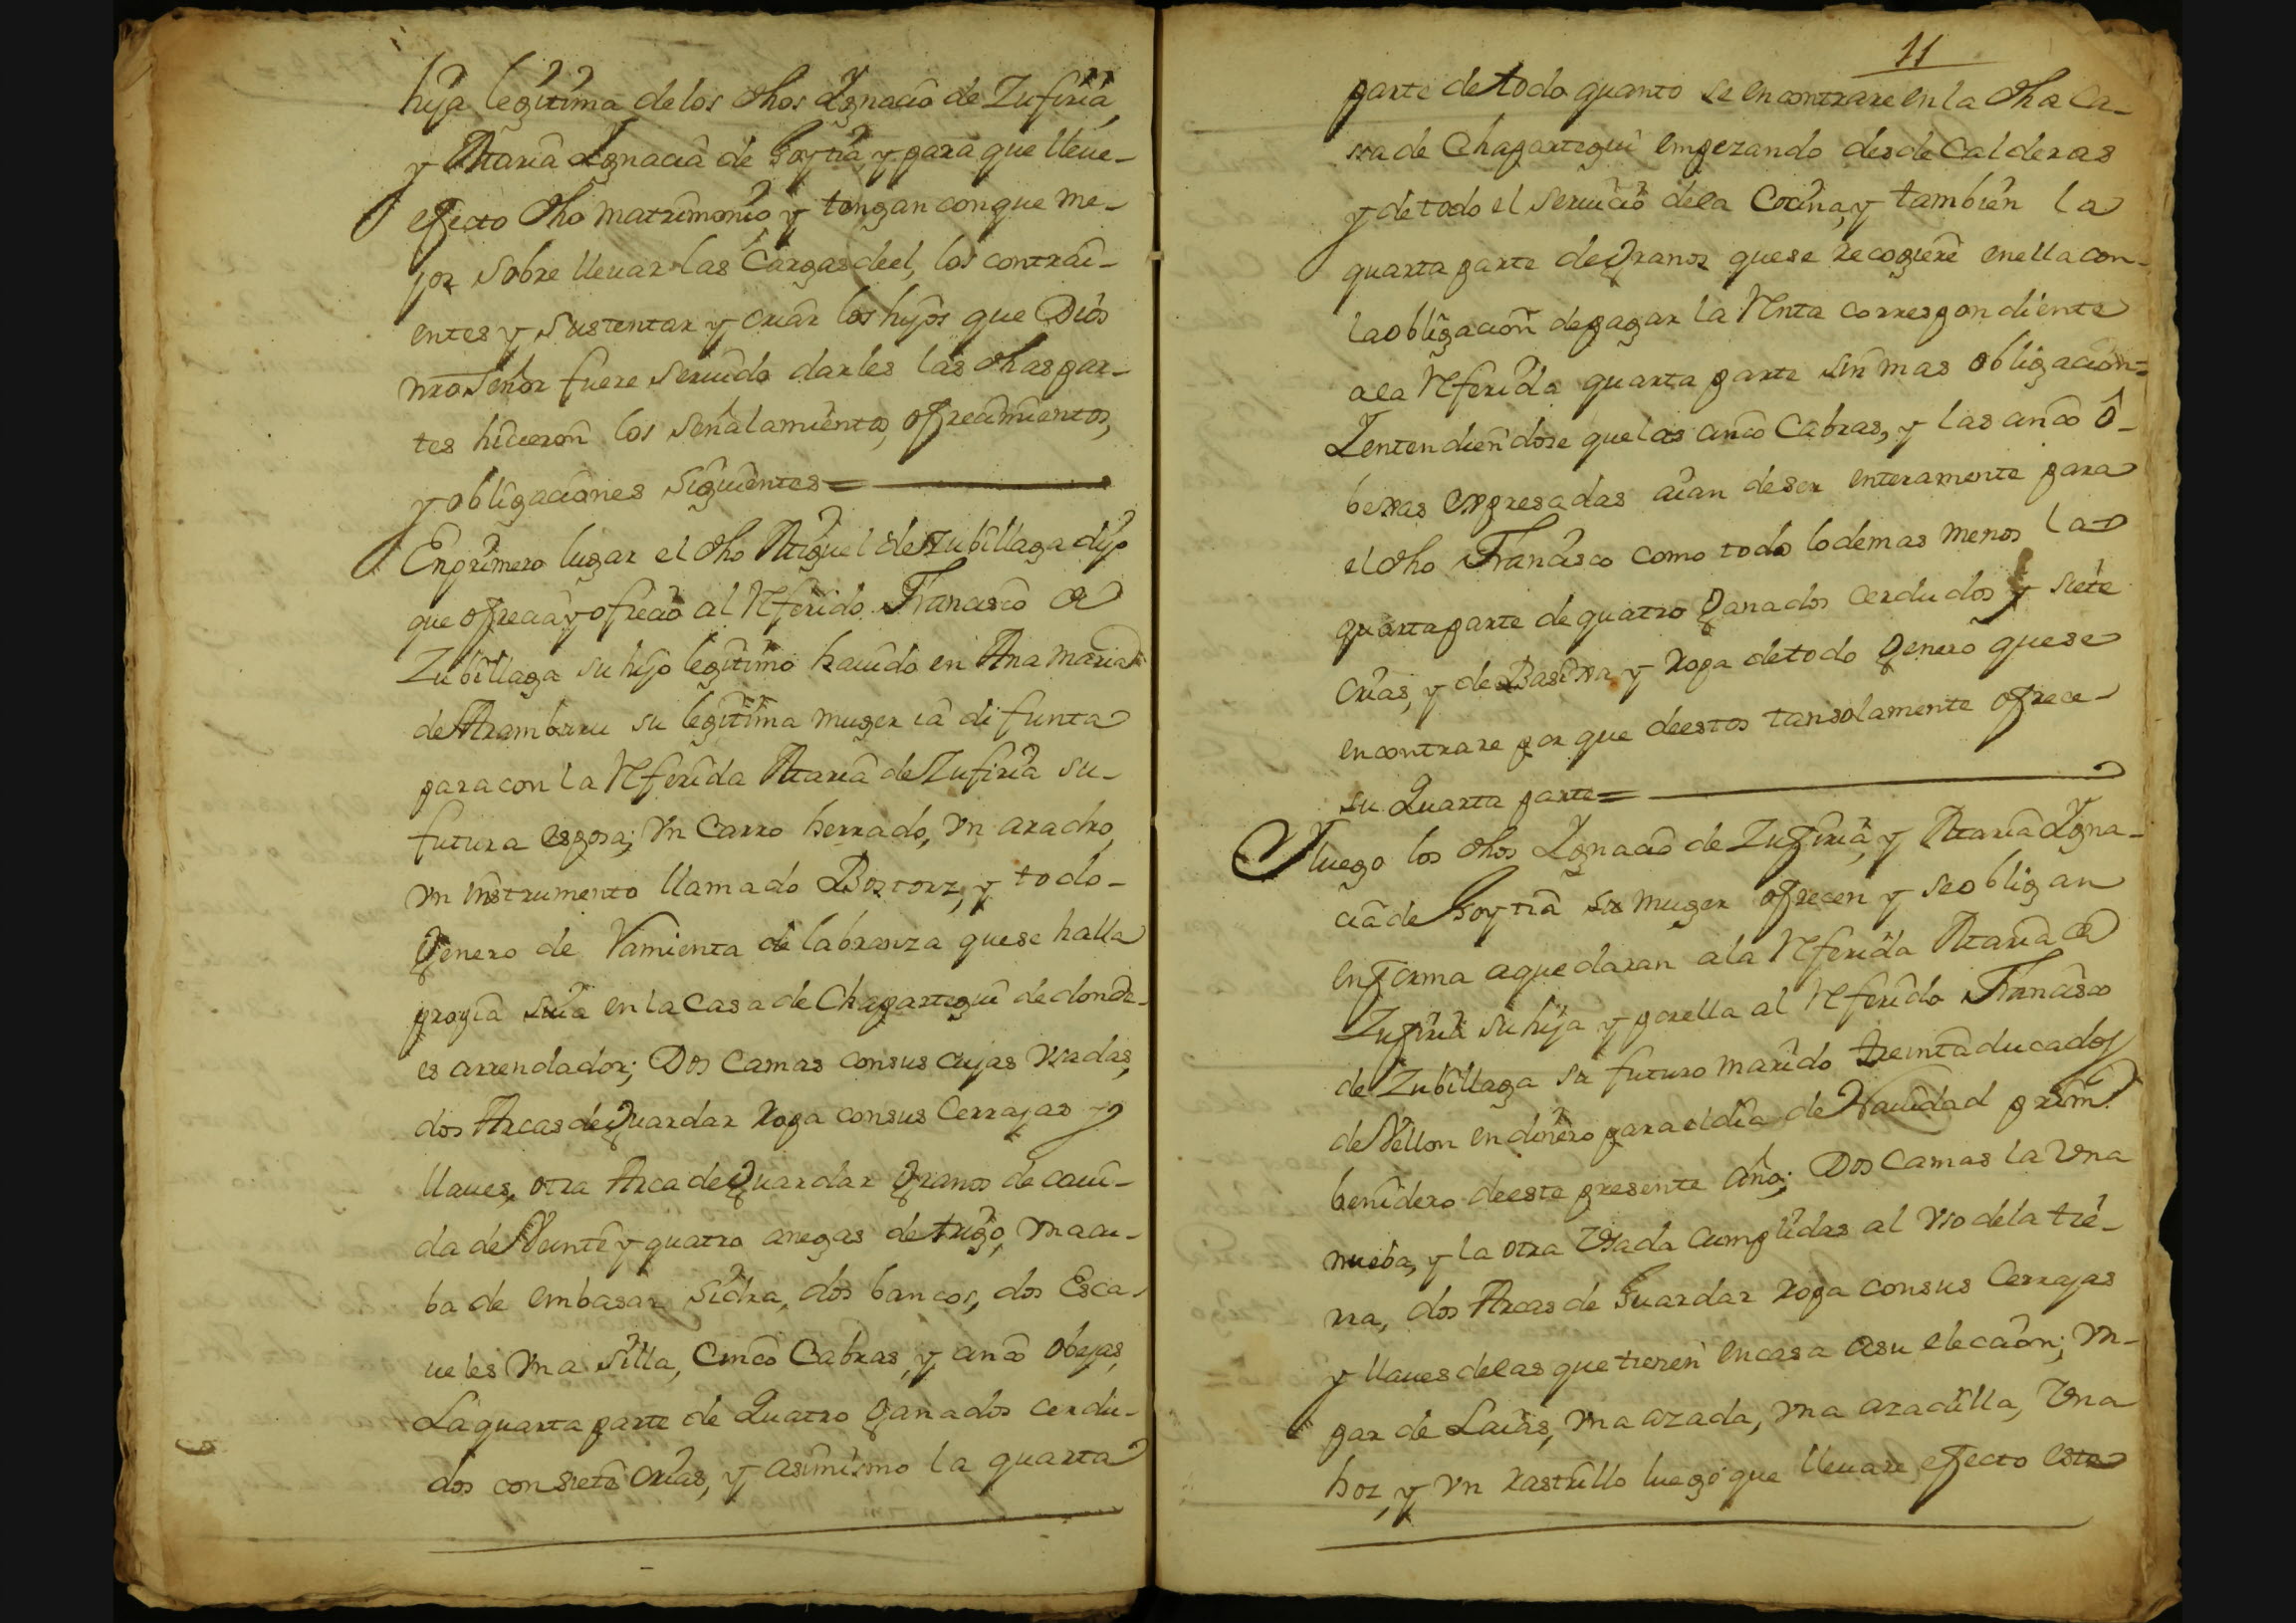 hija legitima de los dhos Ygnacio de Zufiria,
y Maria Ygnacia de Goytia, y para que lleue
efecto dho matrimonio, y tengan con que me-
jor sobre lleuar las Cargas deel, los contrai-
entes y sustentar y criar los hijos que Dios
nro Señor fuere seruido darles las dhas par-
tes hicieron los señalamientos, ofrecimientos,
y obligaciones siguientes =
En primero lugar el dho Miguel de Zubillaga dijo
que ofrecia y ofrecio al Referido Francisco de
Zubillaga su hijo legitimo hauido en Ana maria
de Aramburu su legitima muger ia difunta
para con la Referida Maria de Zufiria su
futura esposa; Vn Carro herrado, Vn aradro,
Vn instrumento llamado Bostorz, y todo
genero de Ramienta de labranza que se halla
propia suia en la Casa de Chapartegui de donde
es arrendador; Dos Camas con sus cujas Vsadas,
dos Arcas de guardar Ropa con sus Cerrajas y
llaues, otra Arca de guardar granos de caui-
da de Veinte y quatro anegas de trigo, Vna cu-
ba de embasar Sidra, dos bancos, dos Esca-
ueles Vna silla, Cinco Cabras, y cinco obejas,
La quarta parte de Quatro ganados cerdu-
dos con siete crias, y asimismo la quarta
11
parte de todo quanto se encontrare en la dha Ca-
sa de Chapartegui empezando desde Calderas
y de todo el seruicio dela Cocina, y tambien la
quarta parte de granos que se recogiere en ella con
la obligacion de pagar la Renta correspondiente
ala Referida quarta parte sin mas obligacion =
Y entendiendose que las cinco Cabras, y las cinco o-
bexas expresadas aian de ser enteramente para
el dho Francisco como todo lo demas menos la
quarta parte de quatro ganados cerdudos y siete
crias, y de Basixa y Ropa de todo genero que se
encontrare por que de estos tan solamente ofrece
su Quarta parte =
Y luego los dhos Ygnacio de Zufiria, y Maria Ygna-
cia de Goytia su muger ofrecen y se obligan
en forma a que daran ala Referida Maria de
Zufiria su hija y por ella al Referido Francisco
de Zubillaga su futuro marido treinta ducados
de Vellon en dinero para el dia de Nauidad prim.
benidero de este presente año; Dos Camas la Vna
nueba, y la otra Vsada Cumplidas al Vso de la tie-
rra, dos Arcas de Guardar Ropa con sus Cerrajas
y llaues delas que tienen en casa a su eleccion; Vn
par de Laias, Vna azada, Vna azadilla, Vna
hoz, y Vn Rastrillo luego que lleuare efecto este